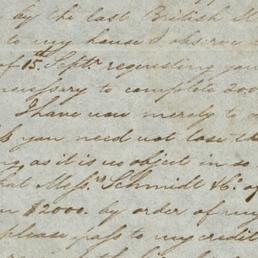 by the last British
to my house I observe
of 15th Septr. requesting you
necessary to complete 200
I have now merely to
you need not lose the
as it is no object in so
that Messrs. Schmidt & Co. of
$2000. by order of my
please pass to my credit